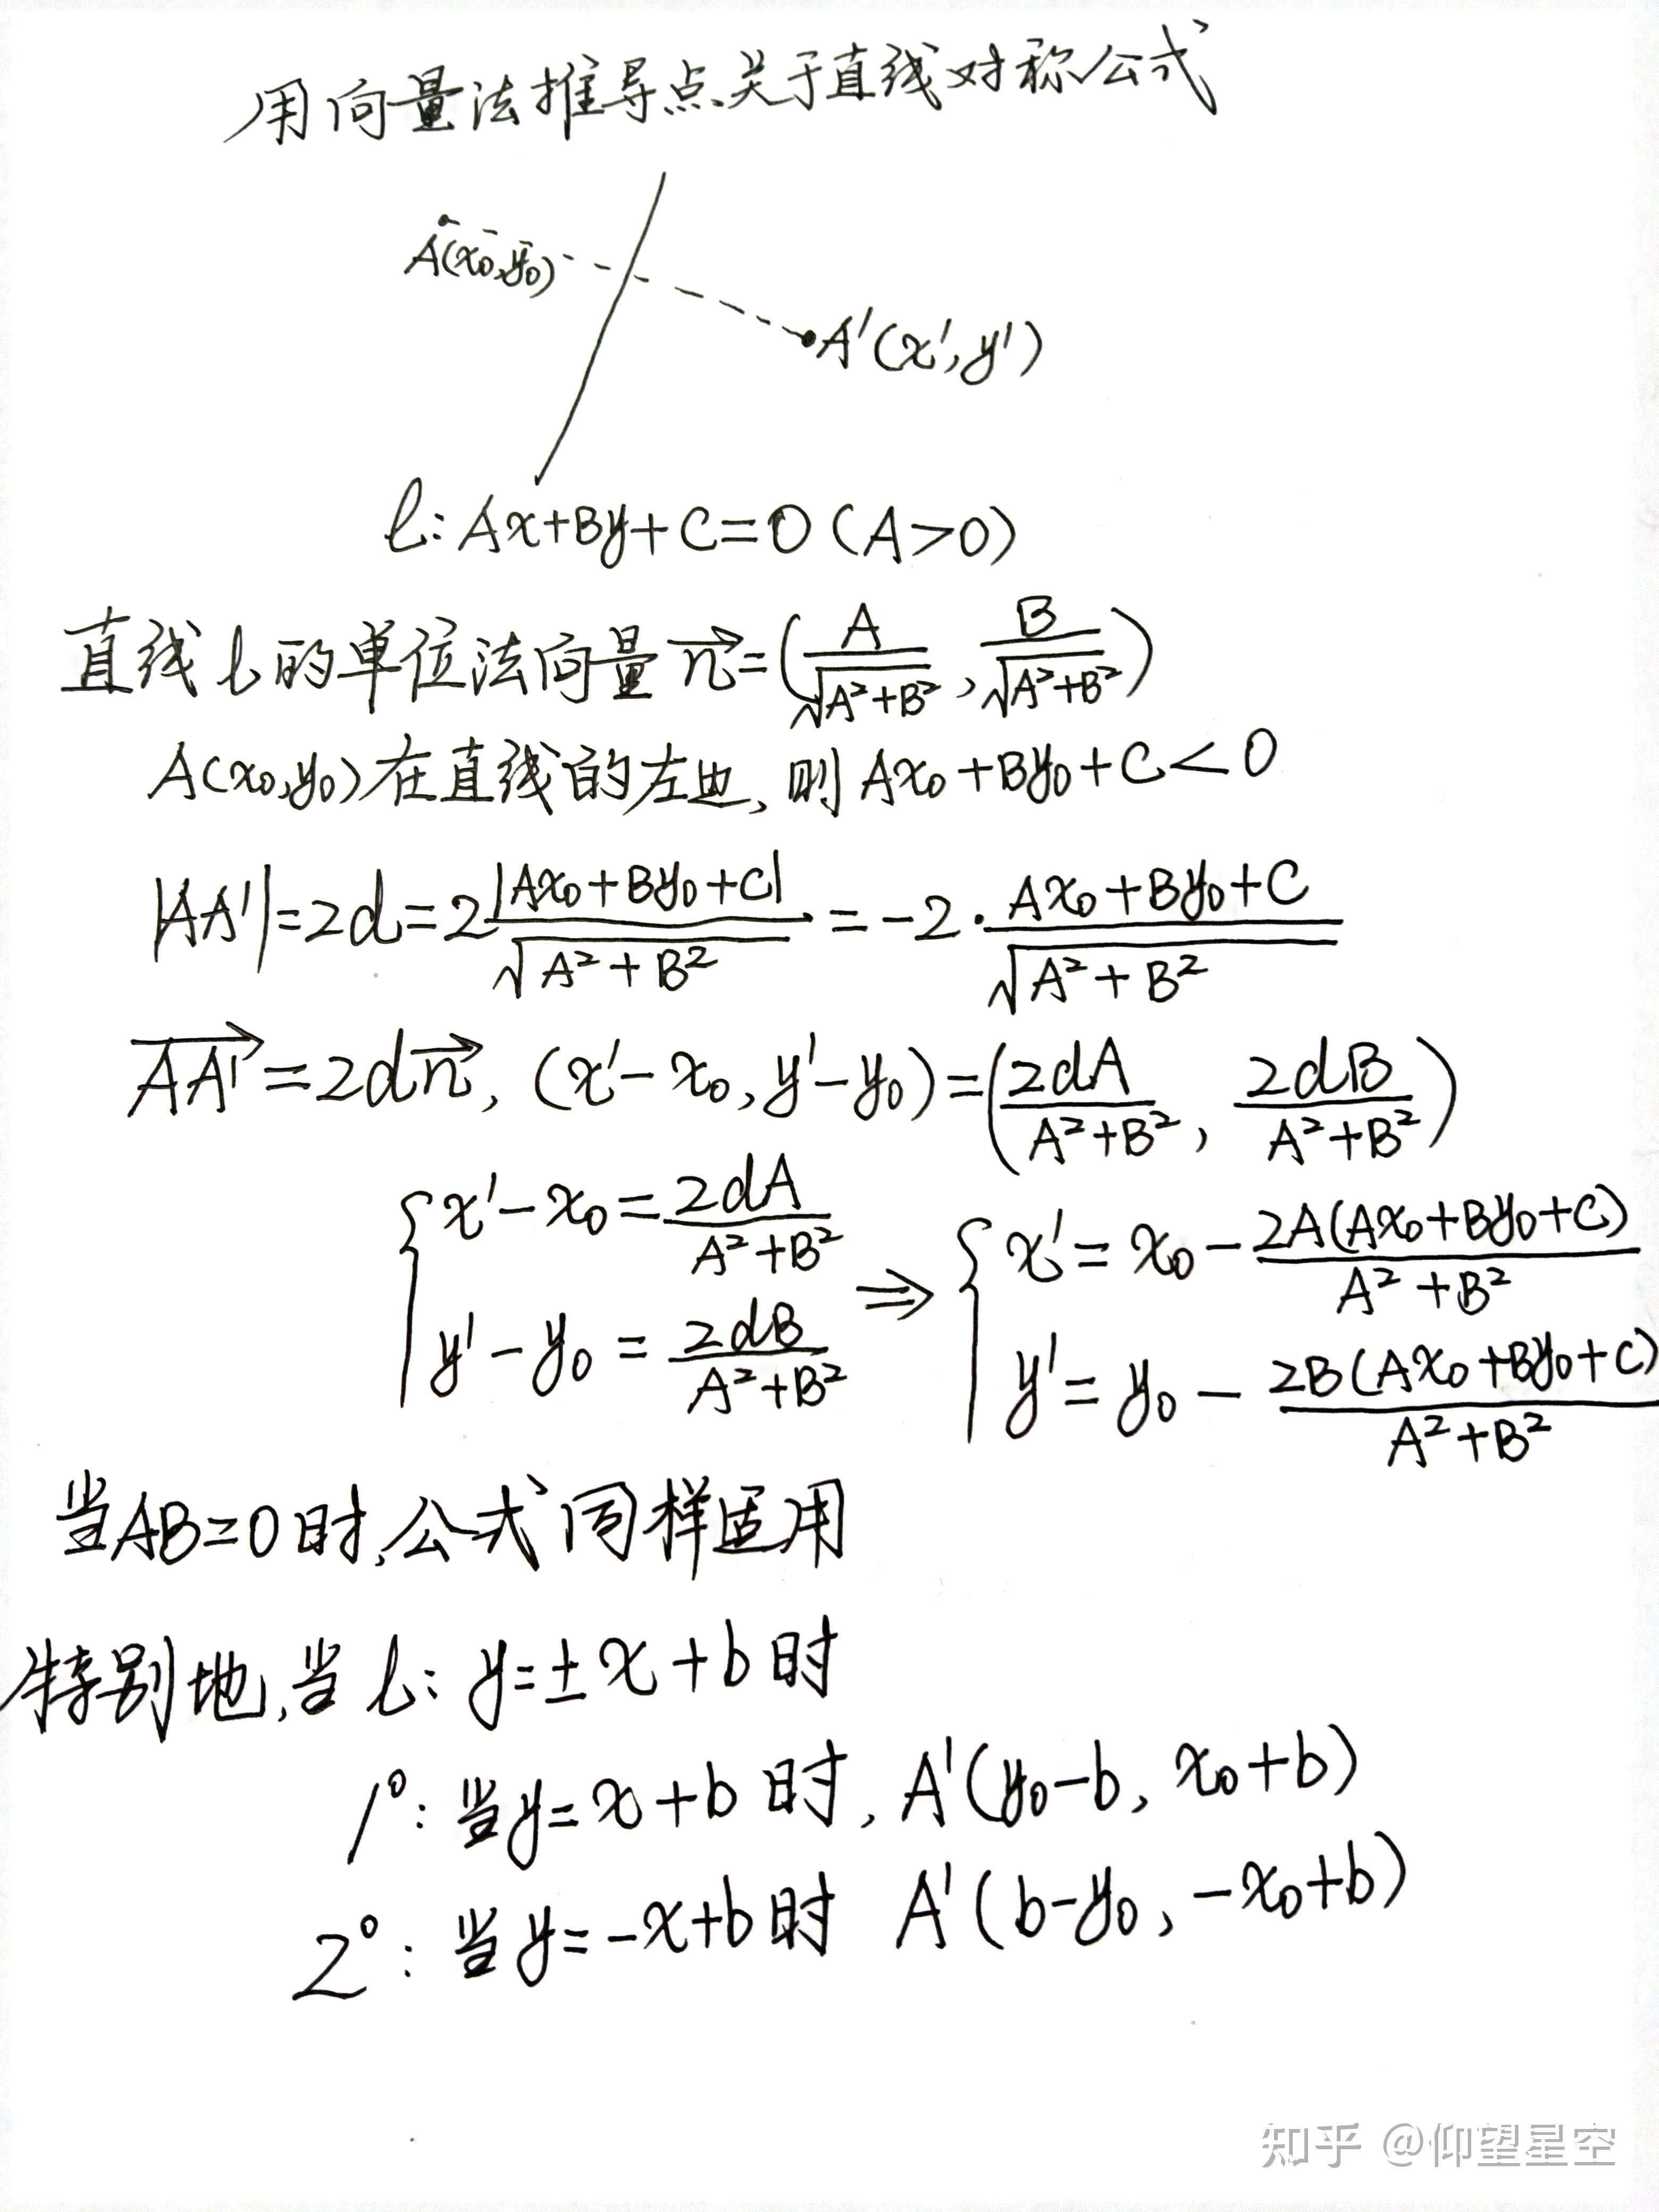 用向量法推导点关于直线对称公式
A(x₀,y₀)
A'(x',y')
l: Ax+By+C=0 (A>0)
直线l的单位法向量 n⃗=(A/√(A²+B²), B/√(A²+B²))
A(x₀,y₀)在直线的左边,则Ax₀+By₀+C<0
|AA'|=2d=2|Ax₀+By₀+C|/√(A²+B²)=-2·(Ax₀+By₀+C)/√(A²+B²)
AA'⃗=2dn⃗, (x'-x₀, y'-y₀)=(2dA/(A²+B²), 2dB/(A²+B²))
{x'-x₀=2dA/(A²+B²) y'-y₀=2dB/(A²+B²) ⇒ {x'=x₀-2A(Ax₀+By₀+C)/(A²+B²) y'=y₀-2B(Ax₀+By₀+C)/(A²+B²)
当AB=0时,公式同样适用
特别地,当l: y=±x+b时
1°: 当y=x+b时, A'(y₀-b, x₀+b)
2°: 当y=-x+b时 A'(b-y₀, -x₀+b)
知乎 @仰望星空